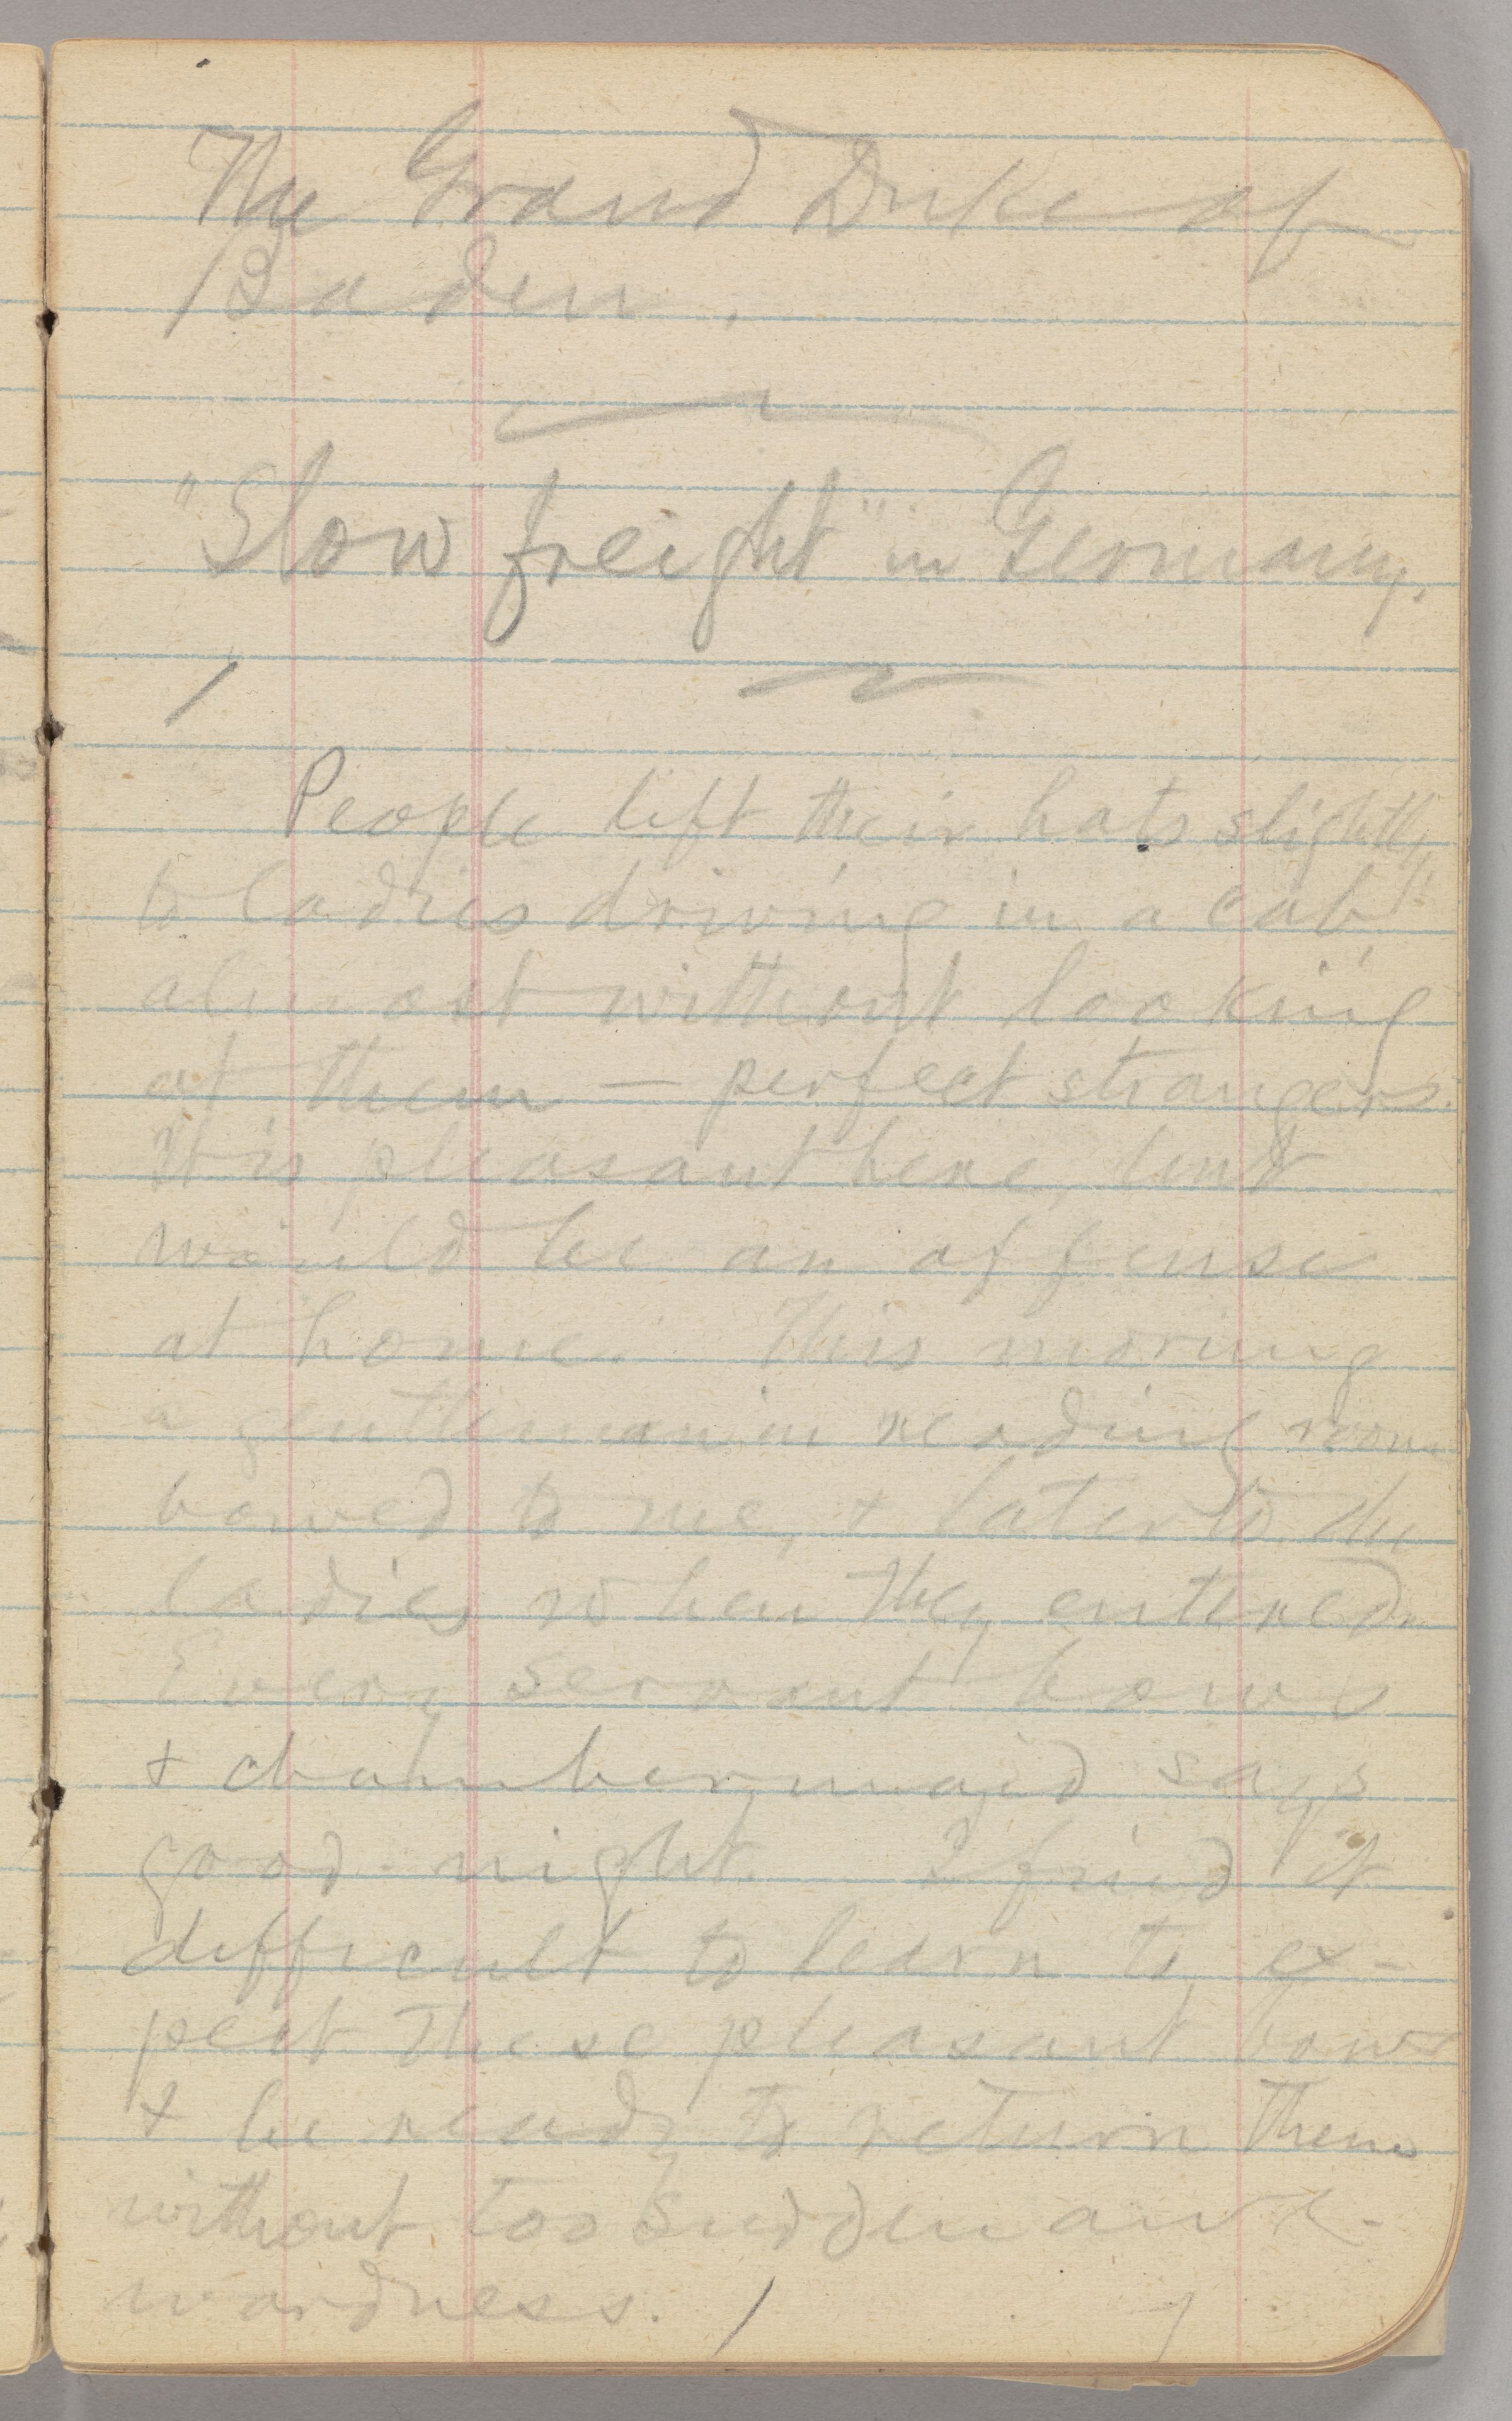 The Grand Duke of
Baden.
"Slow freight" in Germany.
People lift their hats slightly
to ladies driving in a cab,
almost without looking
at them — perfect strangers.
It is pleasant here, but
would be an offense
at home. This morning
a gentleman in reading room
bowed to me, & later to the
ladies when they entered.
Every servant bows
& chambermaid says
good-night. I find it
difficult to learn to ex-
pect these pleasant bows
& be ready to return them
without too sudden awk-
wardness.